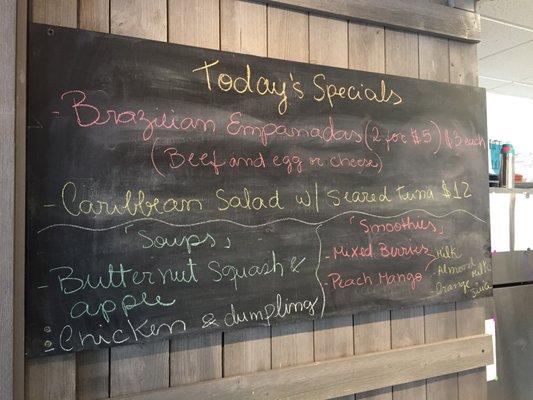 Today's Specials
- Brazilian Empanadas (2 for $5) $3 each
(Beef and egg or cheese)
- Caribbean Salad w/ Seared tuna $12
"Soups"
- Butternut Squash &
apple
- Chicken & dumpling
"Smoothies"
- Mixed Berries
- Peach Mango
Milk
Almond Milk
Orange